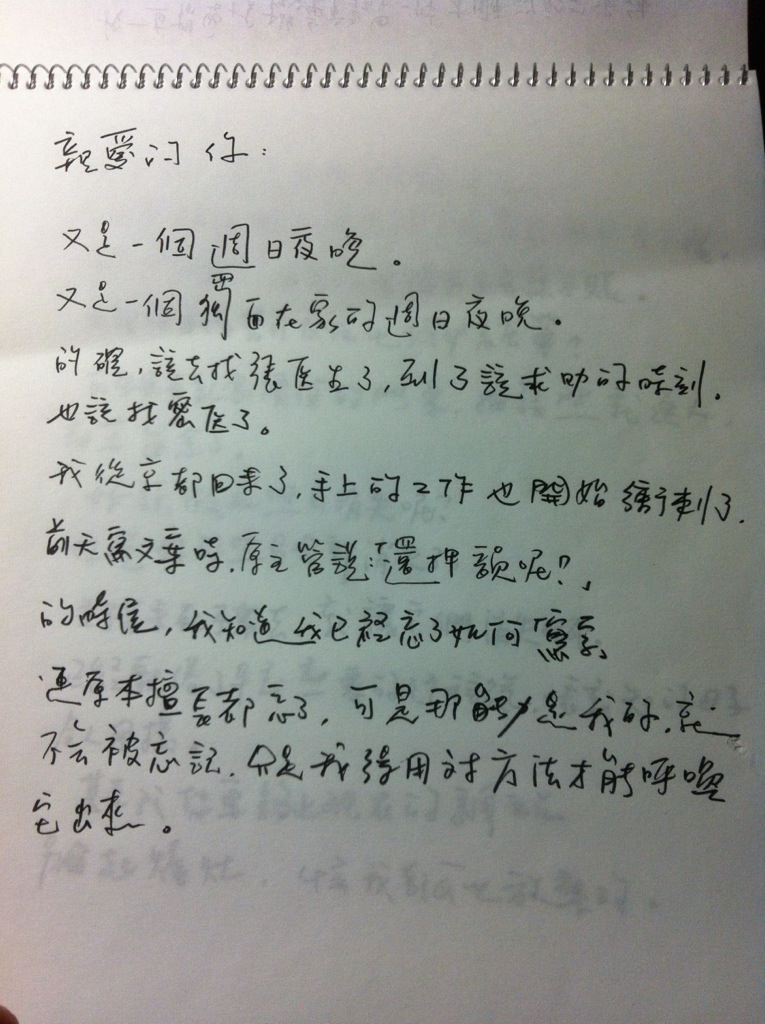 親愛的你：
又是一個週日夜晚。
又是一個獨自在家的週日夜晚。
的確，該去找張医生了，到了該求助的時刻.
也該找医了。
我從京都回來了，手上的工作也開始衝刺了.
前天寫文案時，原主管說：「還押韻呢？」
的時候，我知道我已經忘了如何寫字、
連原本擅長都忘了，可是那能力是我的，就
不會被忘記，只是我得用對方法才能呼喚
它出來。